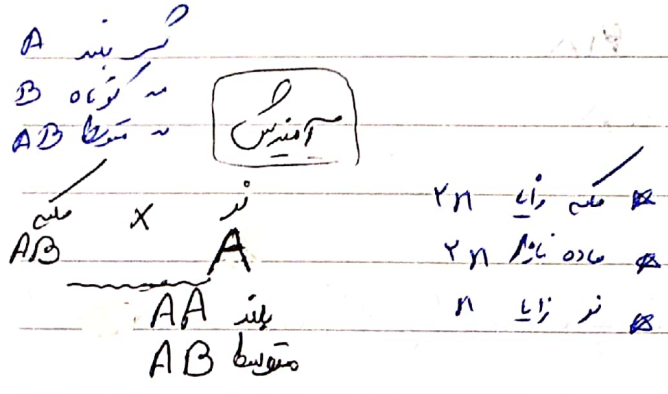 شاخک بلند A
" کوتاه B
" متوسط AB
آمیزش
ملکه × نر
AB A
AA بلند
AB متوسط
* ملکه زایا ۲n
* ماده نازا ۲n
* نر زایا n